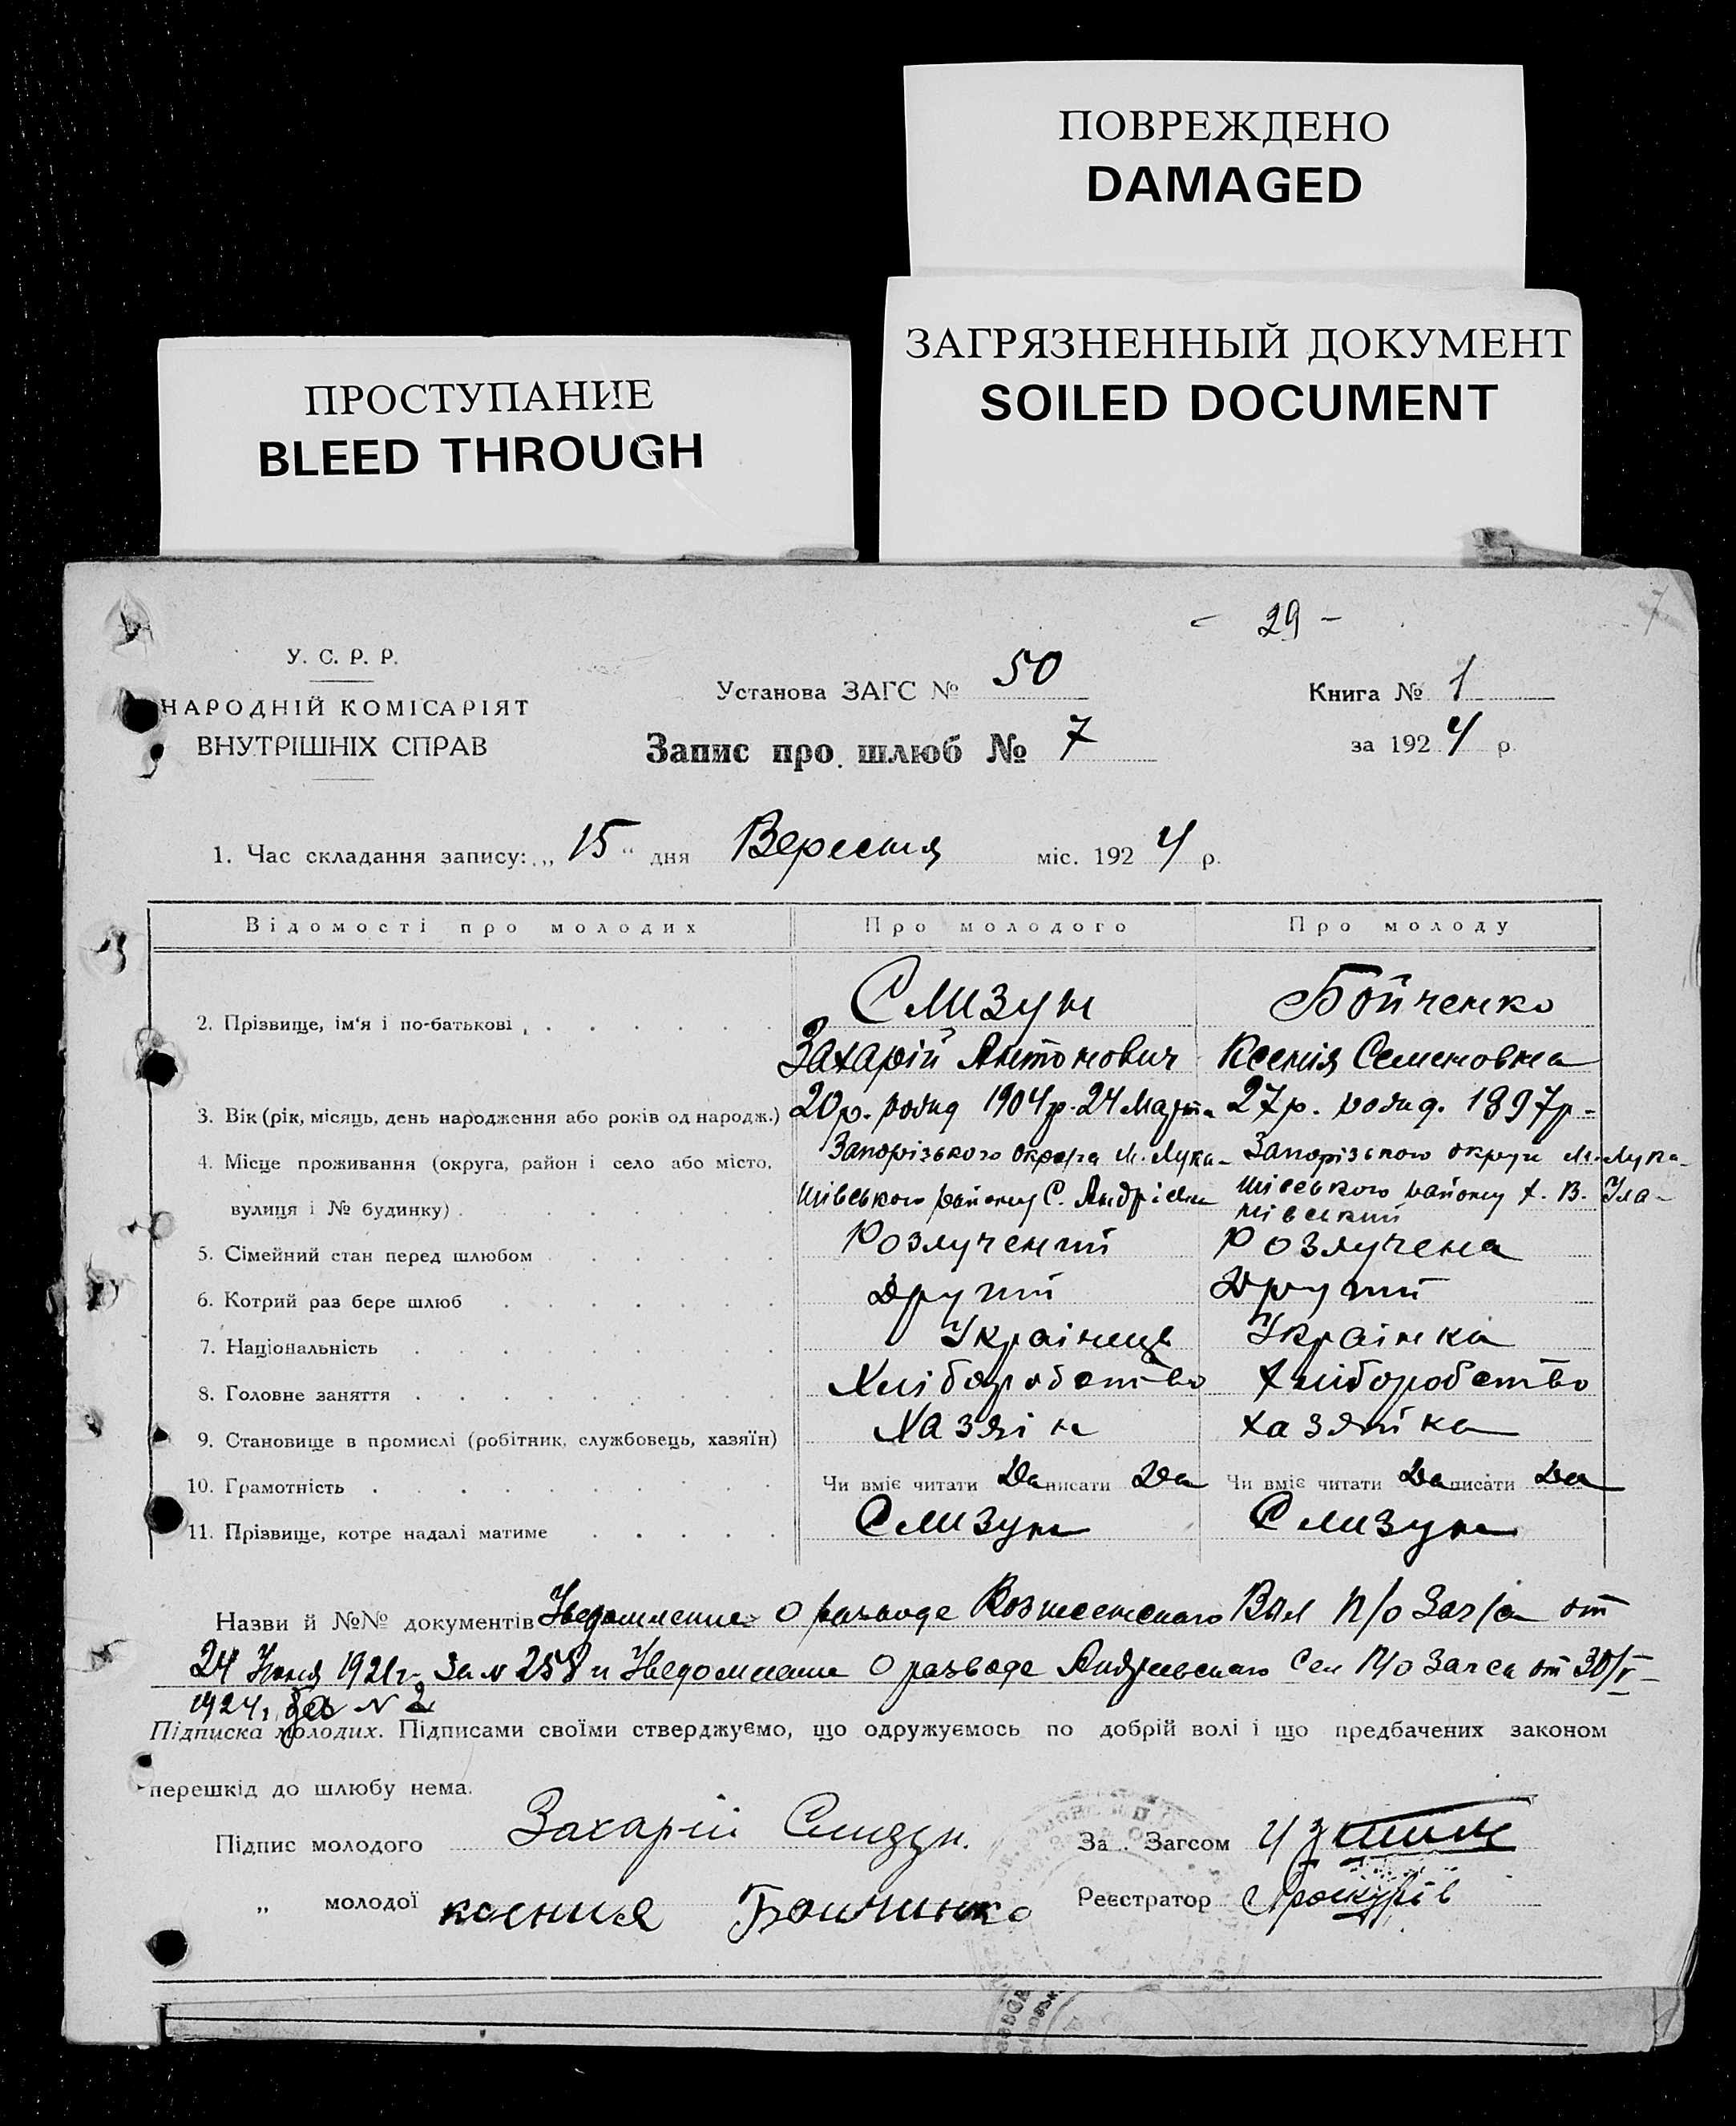 ПОВРЕЖДЕНО
DAMAGED
ЗАГРЯЗНЕННЫЙ ДОКУМЕНТ
SOILED DOCUMENT
ПРОСТУПАНИЕ
BLEED THROUGH
- 29 -
7
У. С. Р. Р.
НАРОДНІЙ КОМІСАРІЯТ
ВНУТРІШНІХ СПРАВ
Установа ЗАГС № 50
Запис про шлюб № 7
Книга № 1
за 1924 р.
1. Час складання запису: „15“ дня Вересня міс. 1924 р.
Відомості про молодих Про молодого Про молоду
2. Прізвище, ім'я і по-батькові Слизун Бойченко
Захарій Антонович Ксенія Семеновна
3. Вік (рік, місяць, день народження або років од народж.) 20р. рожд 1904р. 24 Марта 27р. рожд. 1897р -
4. Місце проживання (округа, район і село або місто, Запорізького округа М. Лука- Запорізького округи М. Лука-
вулиця і № будинку) шівського району С. Андрієвки шівського району х. В. Ула-
нівський
5. Сімейний стан перед шлюбом Розлучений Розлучена
6. Котрий раз бере шлюб Другий Другий
7. Національність Українець Українка
8. Головне заняття Хліборобство Хліборобство
9. Становище в промислі (робітник, службовець, хазяїн) Хазяін хазяйка
10. Грамотність Чи вміє читати Да писати Да Чи вміє читати Да писати Да
11. Прізвище, котре надалі матиме Слизун Слизун
Назви й №№ документів Уведомление о разводе Вознесенского Вол П/о Загса от
24 Июня 1921г. За N 258 и Уведомление о разводе Андреевского Сел П/о Загса от 30/V-
1924г. за N 2
Підписка молодих. Підписами своїми стверджуємо, що одружуємось по добрій волі і що предбачених законом
перешкід до шлюбу нема.
Підпис молодого Захарій Слизун.
За . Загсом
„ молодої ксения Боичинко
Реєстратор